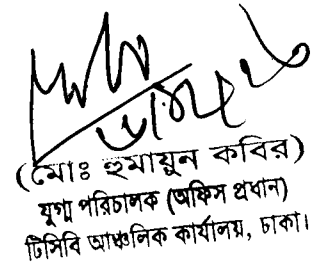 (মোঃ হুমায়ুন কবির)
যুগ্ম পরিচালক (অফিস প্রধান)
টিসিবি আঞ্চলিক কার্যালয়, ঢাকা।